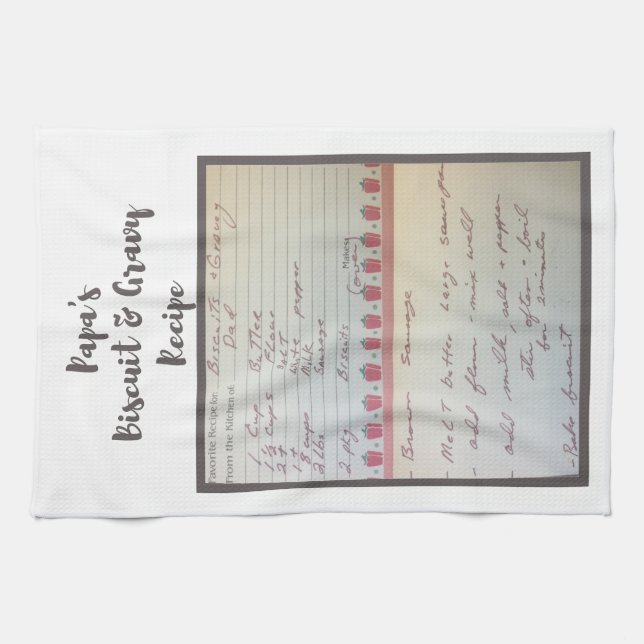 Papa's
Biscuit & Gravy
Recipe
Favorite Recipe for: Biscuits + Gravey
From the Kitchen of: Dad
1 Cup Butter
1 ½ Cups Flour
2 t SALT
1 t White Pepper
8 cups Milk
2 lbs Sausage
2 pkg Biscuits
Makes:
(over)
- Brown Sausage
- Melt butter large sauce pan
- add flour - mix well
- add milk, salt + pepper
stir often + boil
for 2 minutes
- Bake biscuit